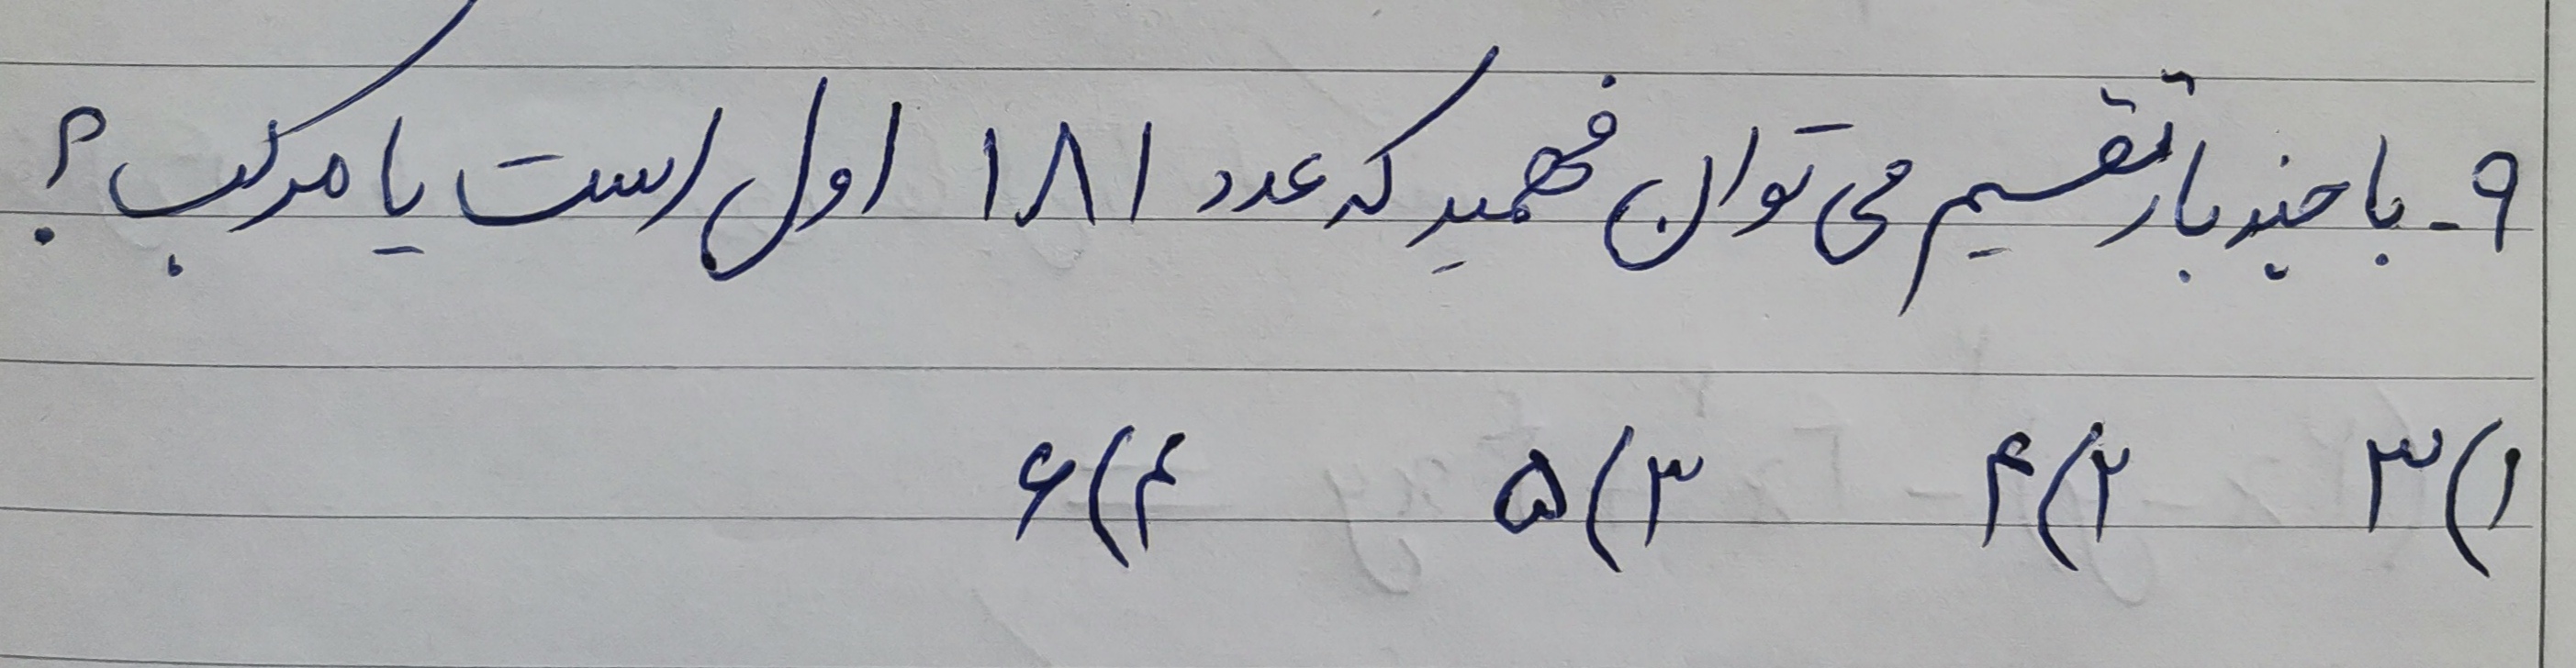 ۹- با چند بار تقسیم می توان فهمید که عدد ۱۸۱ اول است یا مرکب؟
۱) ۳ ۲) ۴ ۳) ۵ ۴) ۶